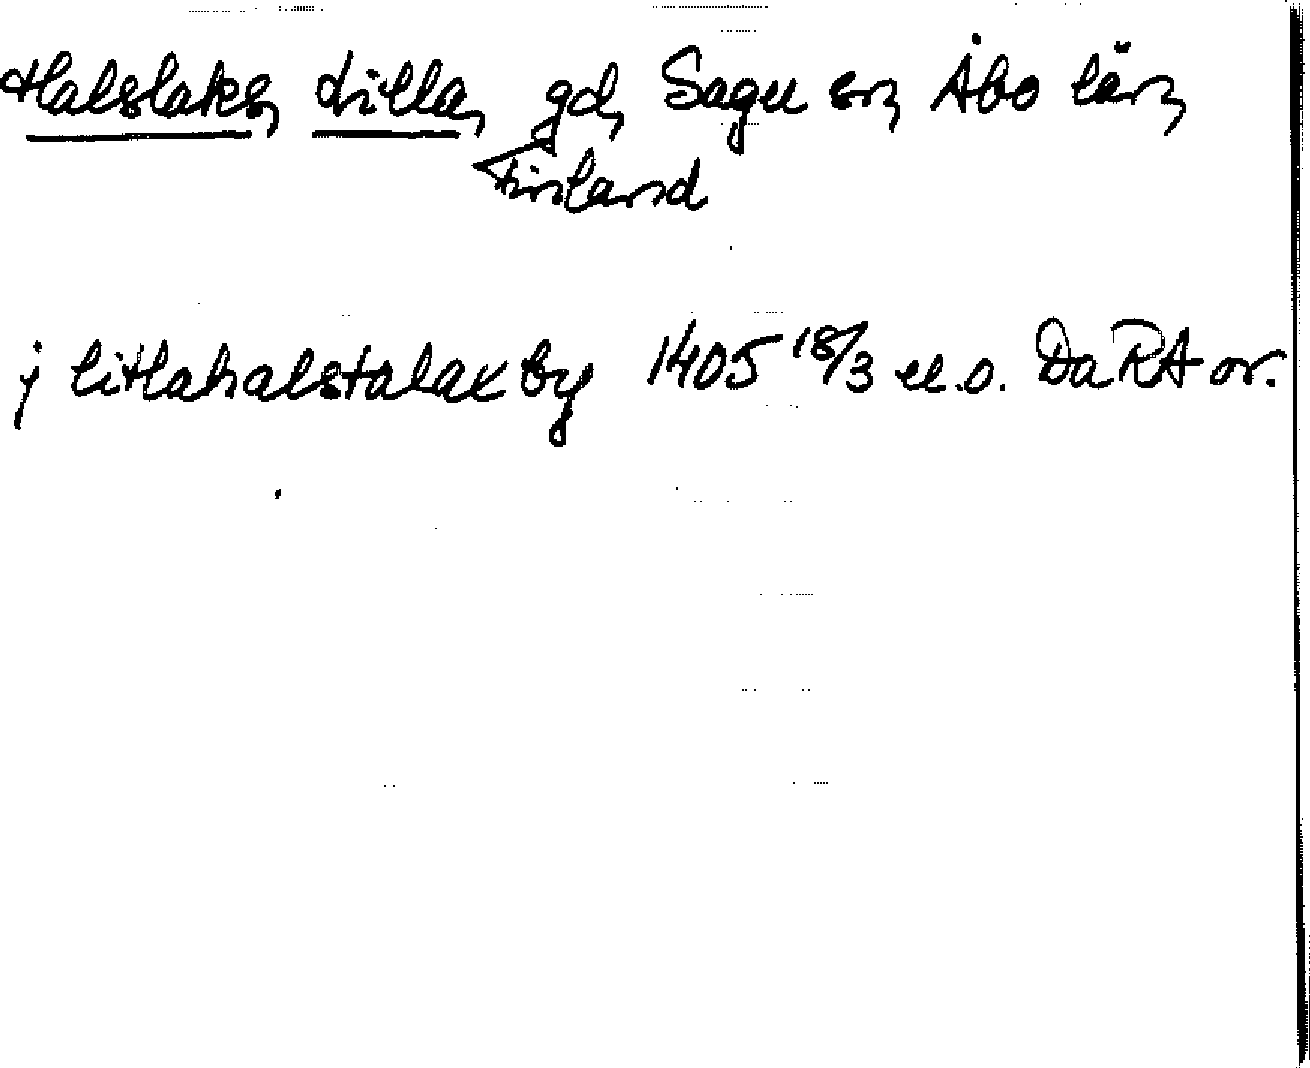 Halslaks, Lilla, gd, Sagu sn, Åbo län,
Finland
j litlahalstalax by 1405 18/3 u.o. DaRA or.